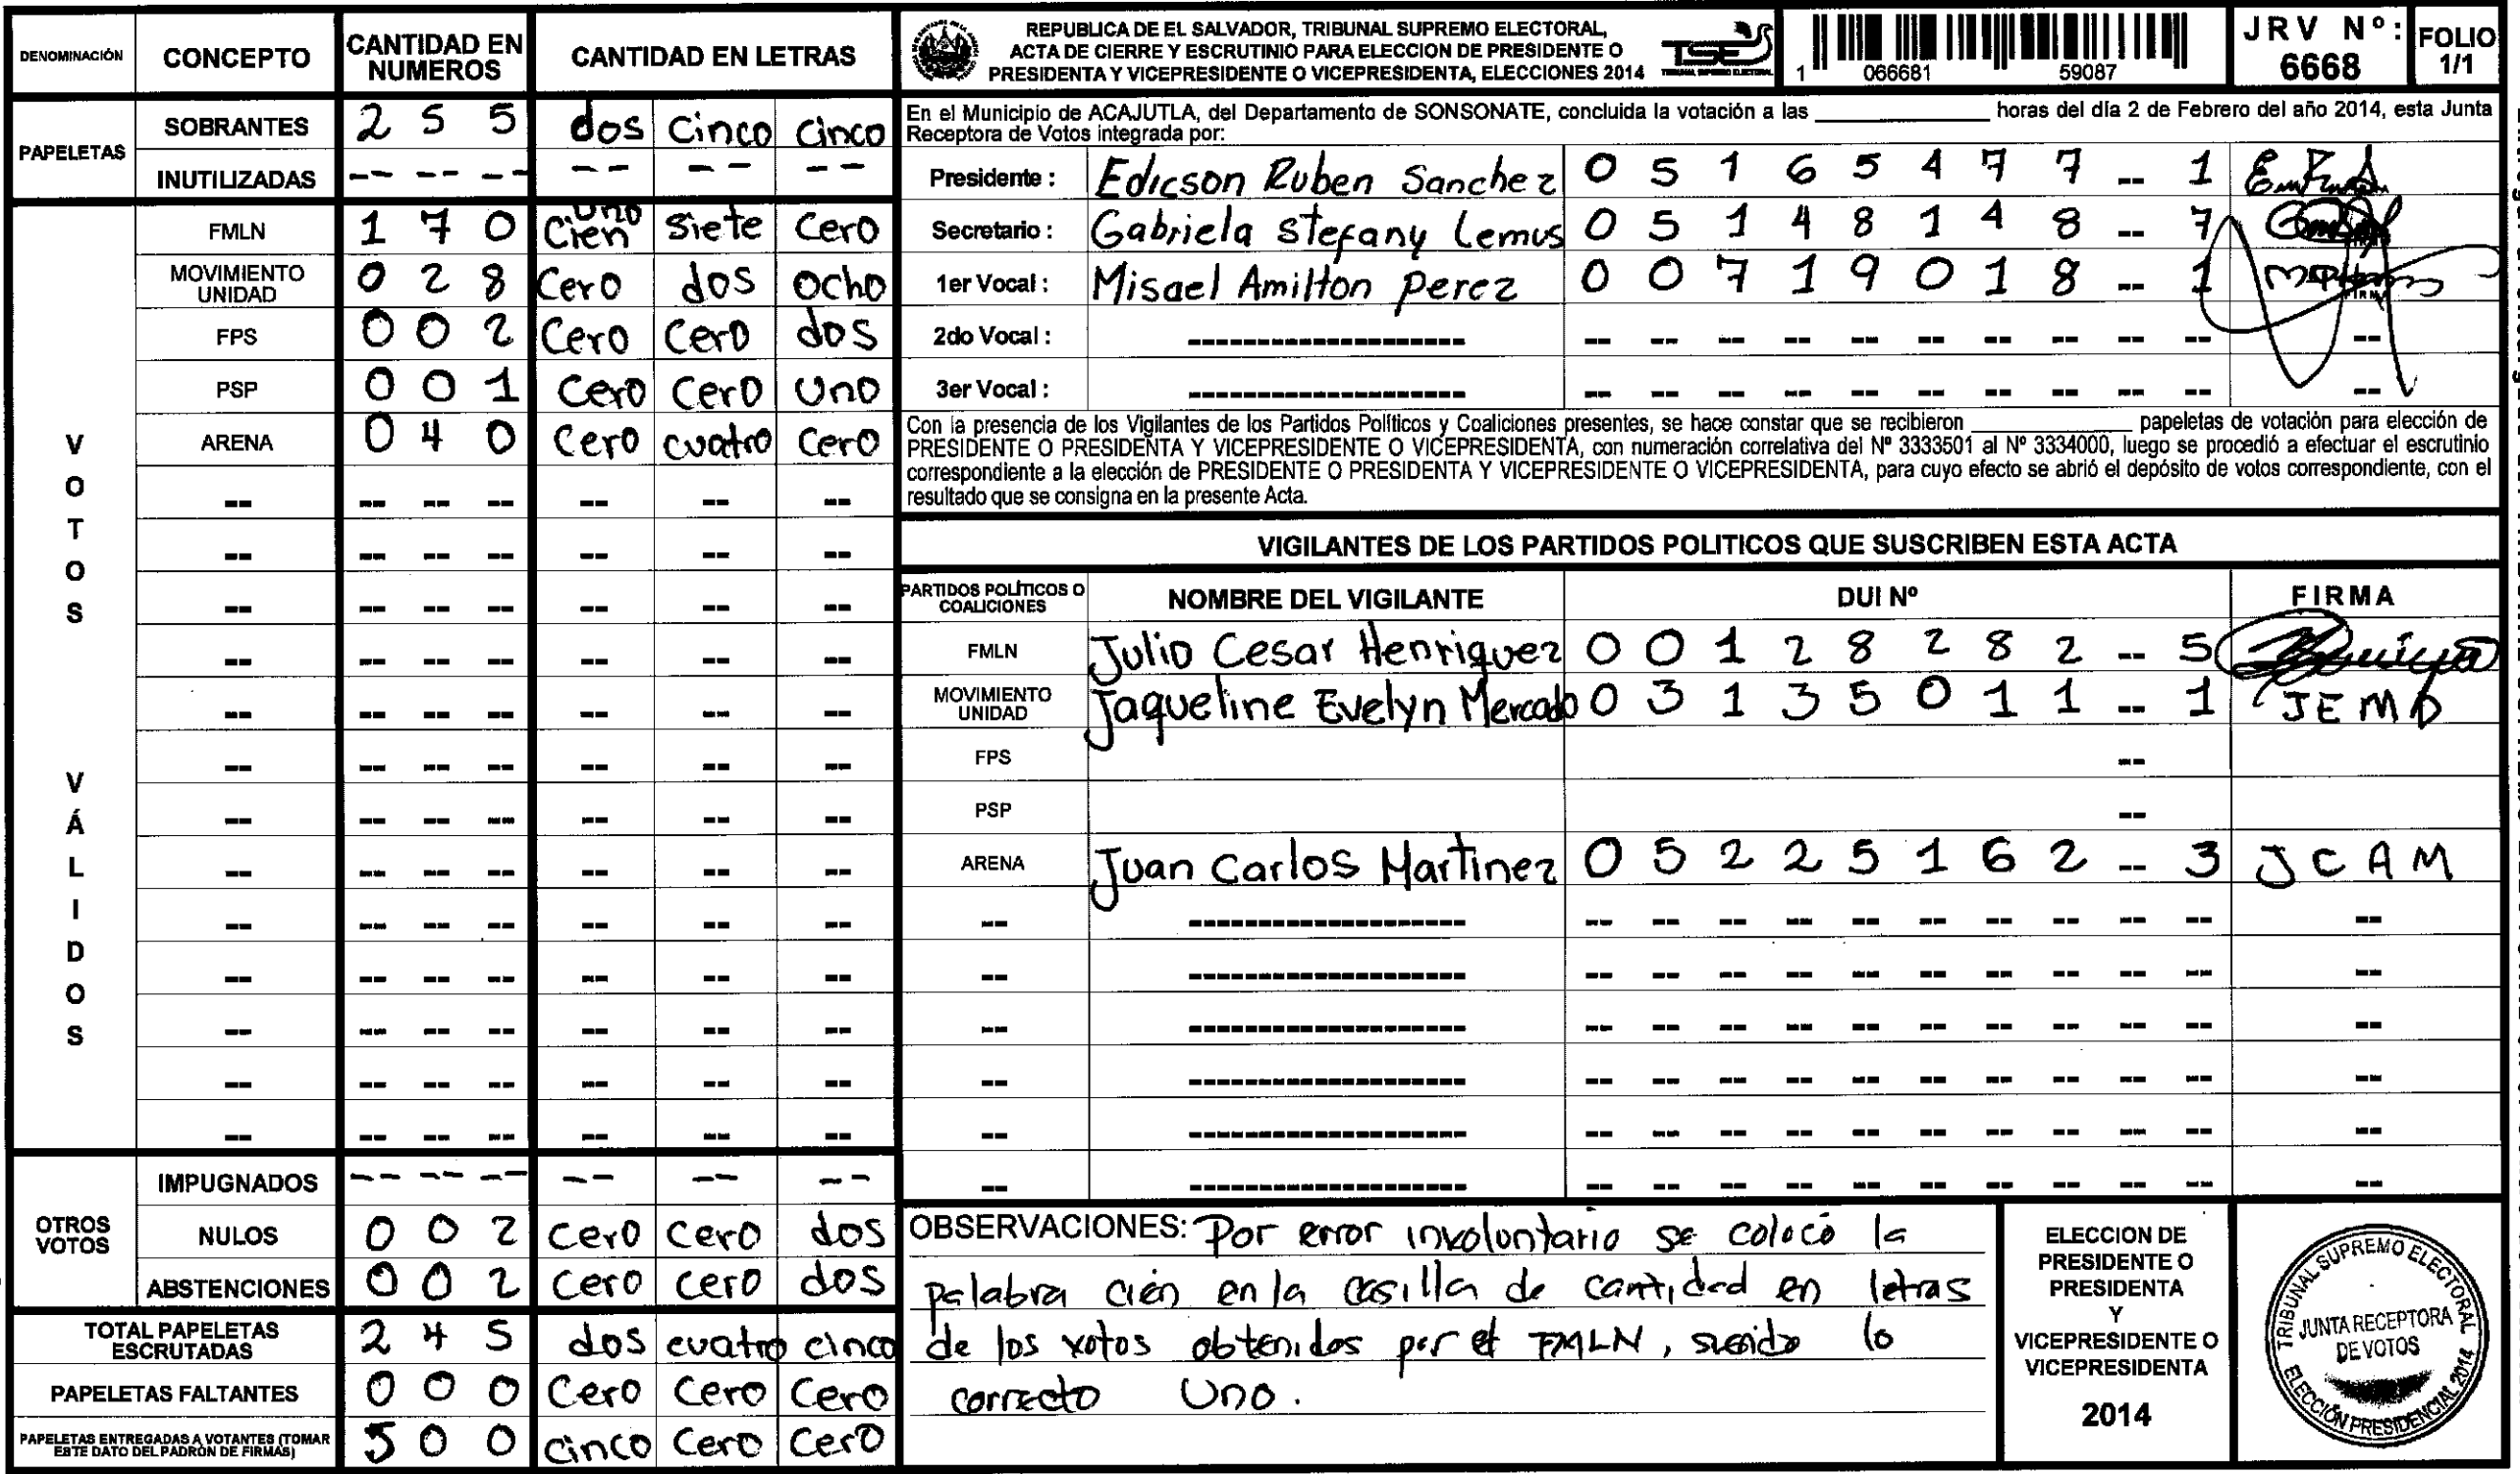 DENOMINACIÓN CONCEPTO CANTIDAD EN NUMEROS CANTIDAD EN LETRAS
PAPELETAS
SOBRANTES 2 5 5 dos Cinco cinco
INUTILIZADAS -- -- -- -- -- --
VOTOS VÁLIDOS
FMLN 1 7 0 Cien uno Siete Cero
MOVIMIENTO UNIDAD 0 2 8 Cero dos Ocho
FPS 0 0 2 Cero Cero dos
PSP 0 0 1 Cero Cero Uno
ARENA 0 4 0 Cero cuatro Cero
-- -- -- -- -- -- --
-- -- -- -- -- -- --
-- -- -- -- -- -- --
-- -- -- -- -- -- --
-- -- -- -- -- -- --
-- -- -- -- -- -- --
-- -- -- -- -- -- --
-- -- -- -- -- -- --
-- -- -- -- -- -- --
-- -- -- -- -- -- --
-- -- -- -- -- -- --
-- -- -- -- -- -- --
-- -- -- -- -- -- --
OTROS VOTOS
IMPUGNADOS -- -- -- -- -- --
NULOS 0 0 2 Cero Cero dos
ABSTENCIONES 0 0 2 Cero cero dos
TOTAL PAPELETAS ESCRUTADAS 2 4 5 dos cuatro cinco
PAPELETAS FALTANTES 0 0 0 Cero Cero Cero
PAPELETAS ENTREGADAS A VOTANTES (TOMAR ESTE DATO DEL PADRÓN DE FIRMAS) 5 0 0 cinco Cero Cero
REPUBLICA DE EL SALVADOR, TRIBUNAL SUPREMO ELECTORAL,
ACTA DE CIERRE Y ESCRUTINIO PARA ELECCION DE PRESIDENTE O
PRESIDENTA Y VICEPRESIDENTE O VICEPRESIDENTA, ELECCIONES 2014
TSE
TRIBUNAL SUPREMO ELECTORAL
1 066681 59087
JRV Nº: 6668
FOLIO 1/1
En el Municipio de ACAJUTLA, del Departamento de SONSONATE, concluida la votación a las ____ horas del día 2 de Febrero del año 2014, esta Junta
Receptora de Votos integrada por:
Presidente : Edicson Ruben Sanchez 0 5 1 6 5 4 7 7 -- 1
Secretario : Gabriela Stefany Lemus 0 5 1 4 8 1 4 8 -- 7
1er Vocal : Misael Amilton Perez 0 0 7 1 9 0 1 8 -- 1
2do Vocal : -------------------- -- -- -- -- -- -- -- -- -- -- --
3er Vocal : -------------------- -- -- -- -- -- -- -- -- -- -- --
Con la presencia de los Vigilantes de los Partidos Políticos y Coaliciones presentes, se hace constar que se recibieron ____ papeletas de votación para elección de
PRESIDENTE O PRESIDENTA Y VICEPRESIDENTE O VICEPRESIDENTA, con numeración correlativa del Nº 3333501 al Nº 3334000, luego se procedió a efectuar el escrutinio
correspondiente a la elección de PRESIDENTE O PRESIDENTA Y VICEPRESIDENTE O VICEPRESIDENTA, para cuyo efecto se abrió el depósito de votos correspondiente, con el
resultado que se consigna en la presente Acta.
VIGILANTES DE LOS PARTIDOS POLITICOS QUE SUSCRIBEN ESTA ACTA
PARTIDOS POLÍTICOS O COALICIONES NOMBRE DEL VIGILANTE DUI Nº FIRMA
FMLN Julio Cesar Henriquez 0 0 1 2 8 2 8 2 -- 5
MOVIMIENTO UNIDAD Jaqueline Evelyn Mercado 0 3 1 3 5 0 1 1 -- 1 JEMD
FPS --
PSP --
ARENA Juan Carlos Martinez 0 5 2 2 5 1 6 2 -- 3 JCAM
-- -------------------- -- -- -- -- -- -- -- -- -- -- --
-- -------------------- -- -- -- -- -- -- -- -- -- -- --
-- -------------------- -- -- -- -- -- -- -- -- -- -- --
-- -------------------- -- -- -- -- -- -- -- -- -- -- --
-- -------------------- -- -- -- -- -- -- -- -- -- -- --
-- -------------------- -- -- -- -- -- -- -- -- -- -- --
OBSERVACIONES: Por error involuntario se colocó la
palabra cién en la casilla de cantidad en letras
de los votos obtenidos por el FMLN, siendo lo
correcto Uno.
ELECCION DE
PRESIDENTE O
PRESIDENTA
Y
VICEPRESIDENTE O
VICEPRESIDENTA
2014
TRIBUNAL SUPREMO ELECTORAL
JUNTA RECEPTORA
DE VOTOS
ELECCIÓN PRESIDENCIAL 2014